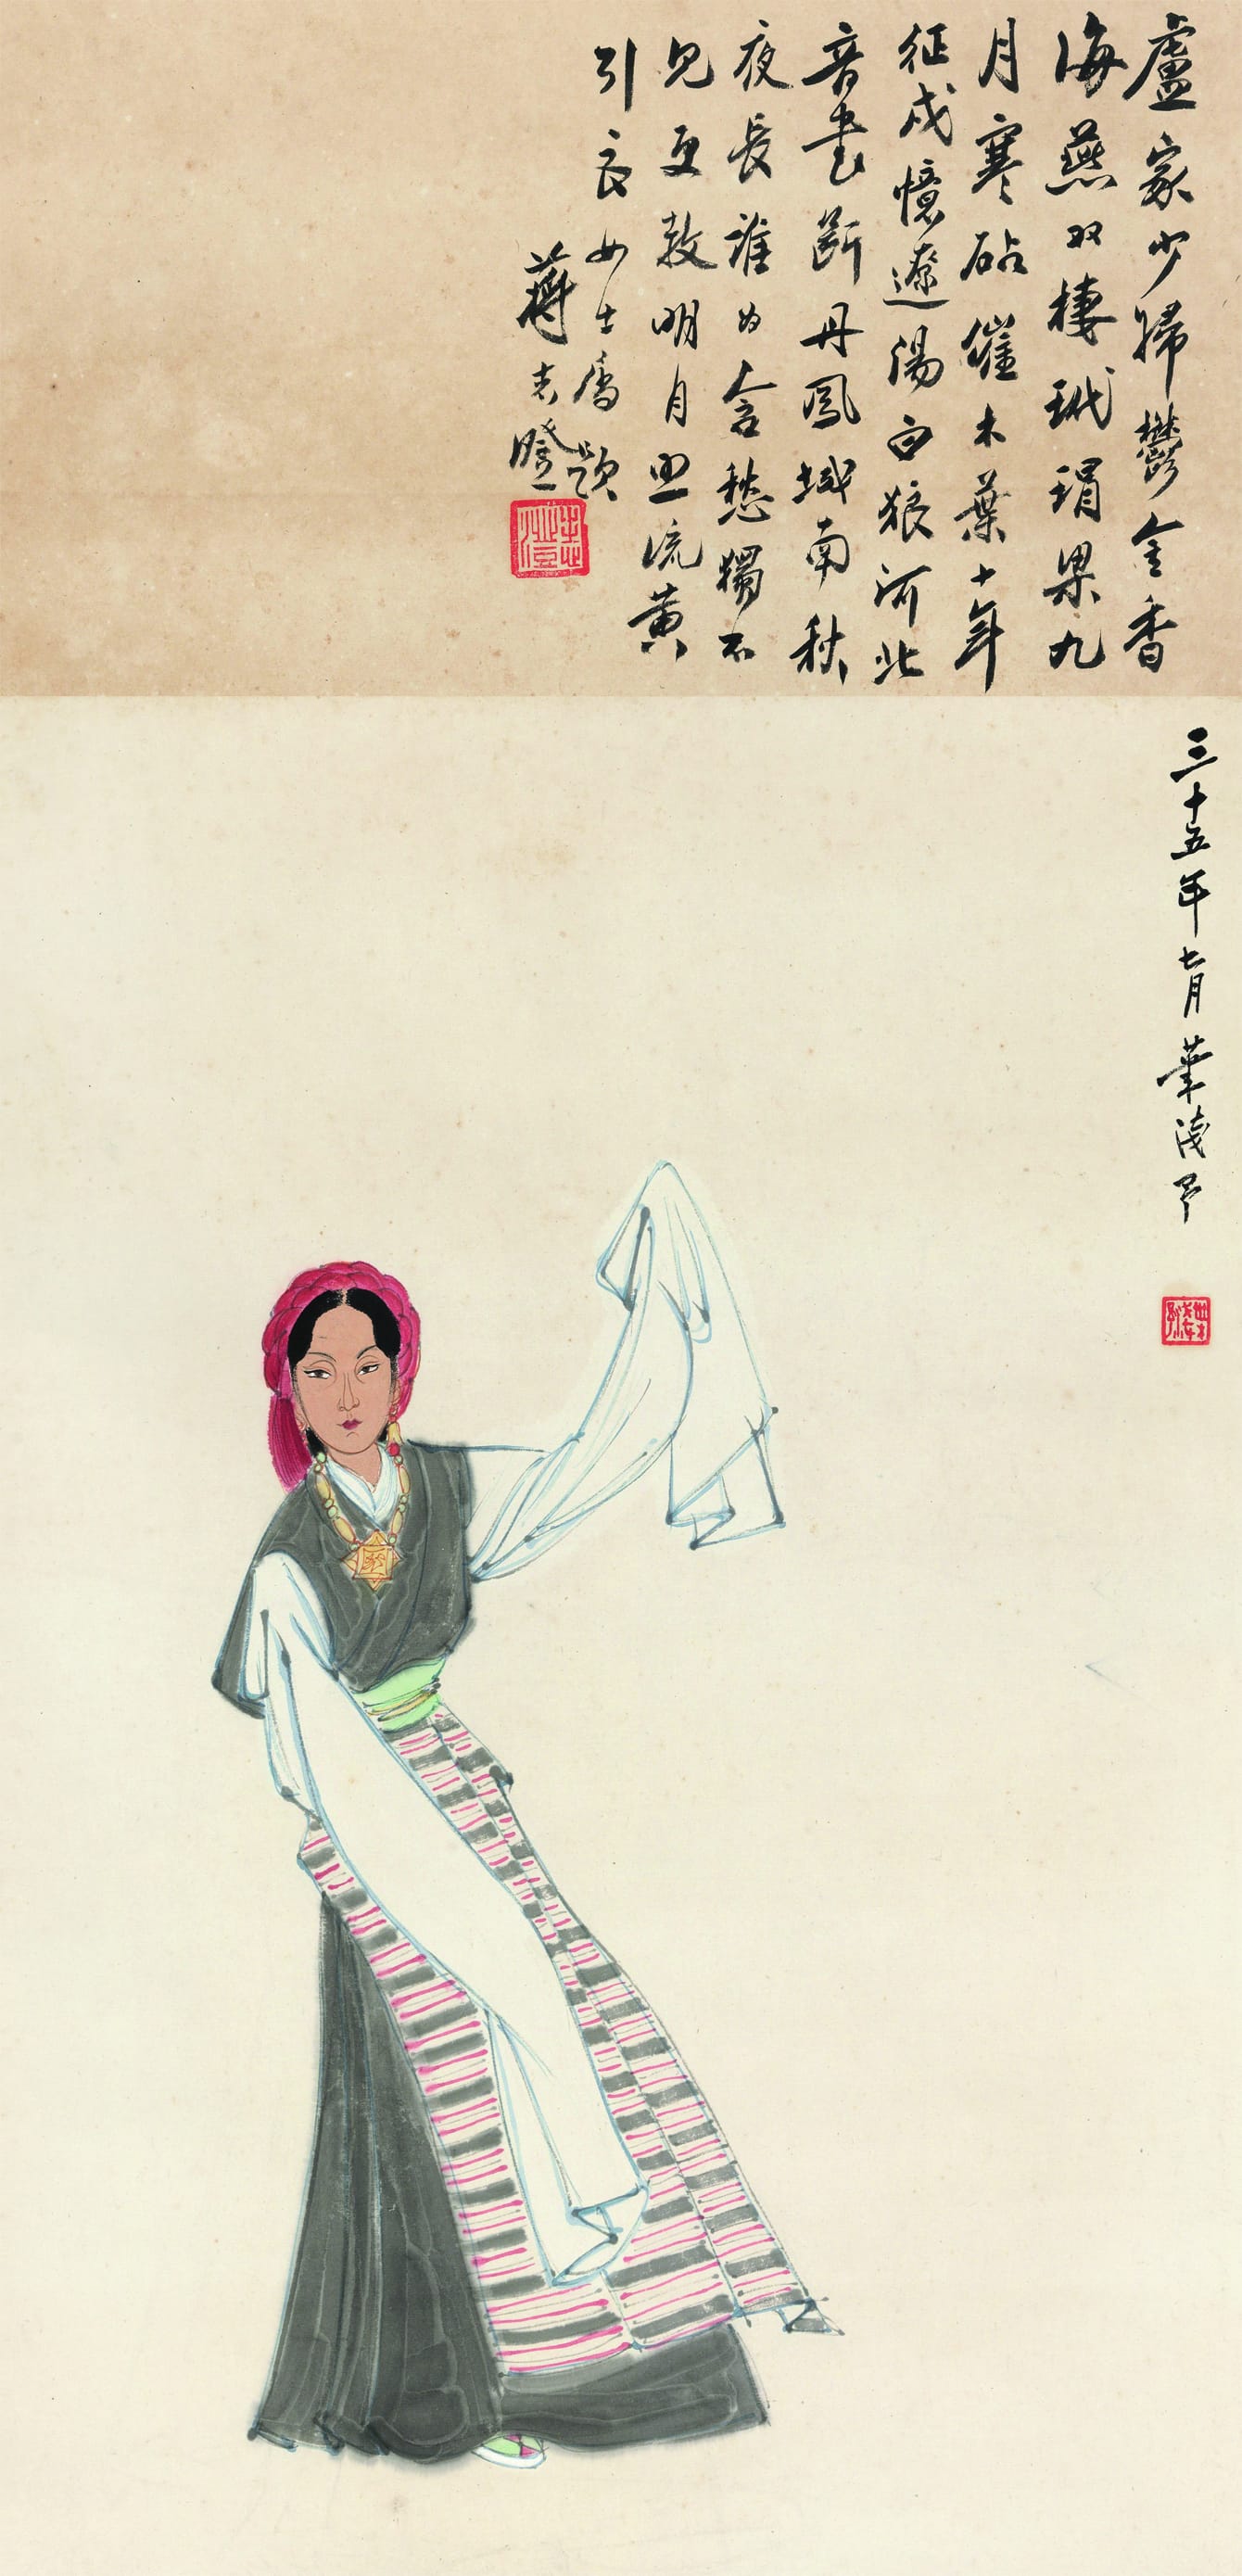 盧家少婦鬱金香
海燕双棲玳瑁梁九
月寒砧催木葉十年
征戍憶遼陽白狼河北
音書斷丹鳳城南秋
夜長誰为含愁獨不
見更教明月照流黄
引良女士屬題
蔣志澄
志澄
三十五年七月葉淺予